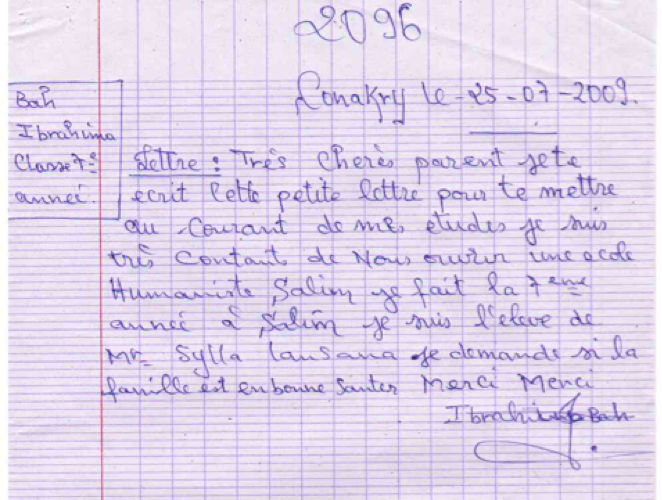 2096
Conakry le -25-07-2009.
Bah
Ibrahima
Classe 7e
année
Lettre : Très Cherès parent je te
ecrit Cette petite lettre pour te mettre
au Courant de mes etudes je suis
très Contants de Nous ouvrir une ecole
Humaniste Salim je fait la 7eme
anneé à Salim je suis l'eleve de
Mr Sylla lansana je demande si la
famille est en bonne Santer Merci Merci
Ibrahima Bah